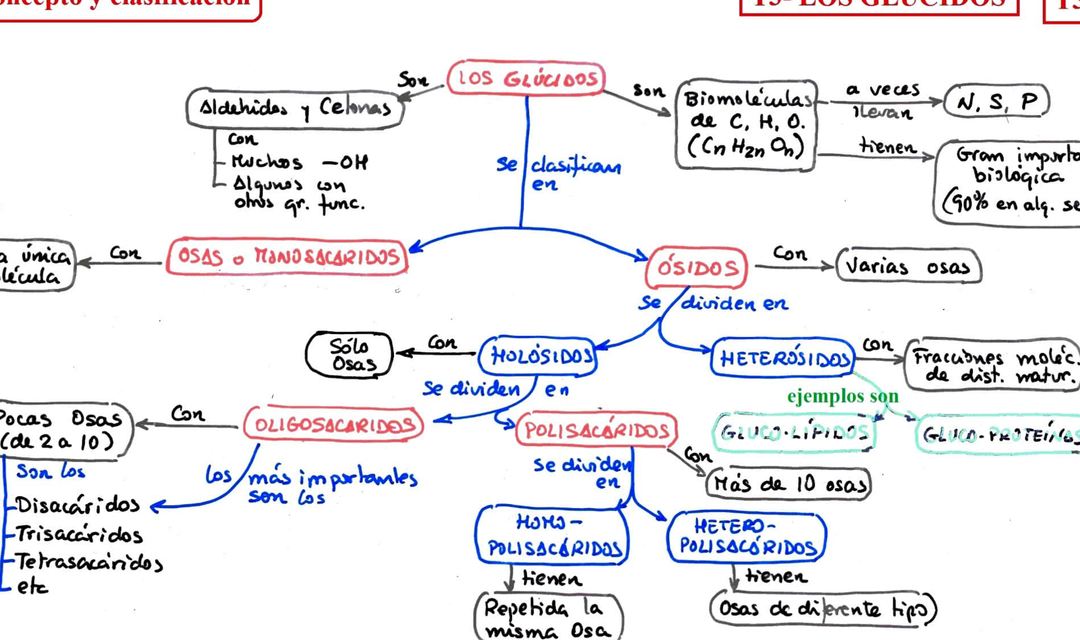 concepto y clasificación
T3- LOS GLÚCIDOS
LOS GLÚCIDOS
Son
Aldehidos y Cetonas
con
Muchos -OH
Algunos con
otros gr. func.
son
Biomoléculas
de C, H, O.
(CnH2nOn)
a veces
llevan
N, S, P
tienen
Gram importa
biológica
(90% en alg. se
se clasifican
en
OSAS o MONOSACÁRIDOS
con
a única
lécula
ÓSIDOS
con
varias osas
se dividen en
HOLÓSIDOS
con
Sólo
Osas
HETERÓSIDOS
con
Fracciones moléc.
de dist. natur.
ejemplos son
GLUCO-LÍPIDOS
GLUCO-PROTEÍNAS
se dividen en
OLIGOSACARIDOS
con
Pocas Osas
(de 2 a 10)
son los
los más importantes
son los
Disacáridos
Trisacáridos
Tetrasacáridos
etc
POLISACÁRIDOS
con
Más de 10 osas
se dividen
en
HOMO-
POLISACÁRIDOS
tienen
Repetida la
misma Osa
HETERO-
POLISACÁRIDOS
tienen
Osas de diferente tipo